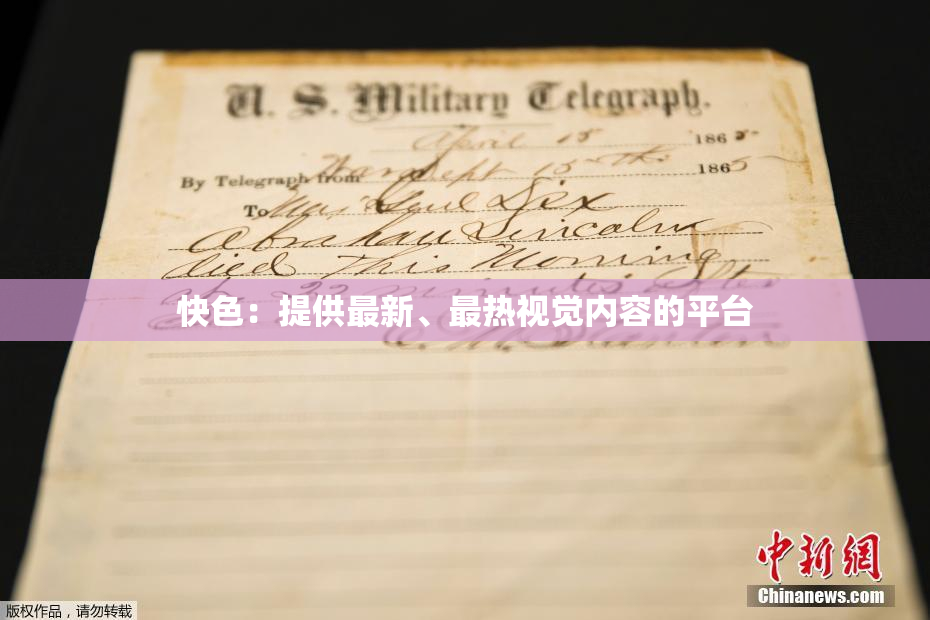 U. S. Military Telegraph.
April 15 1865
By Telegraph from War Dept 15th 1865
To Maj Genl Dix
Abraham Lincoln
died This Morning
at 22 minutes after
快色：提供最新、最热视觉内容的平台
E. M. Stanton
中新网
Chinanews.com
版权作品，请勿转载